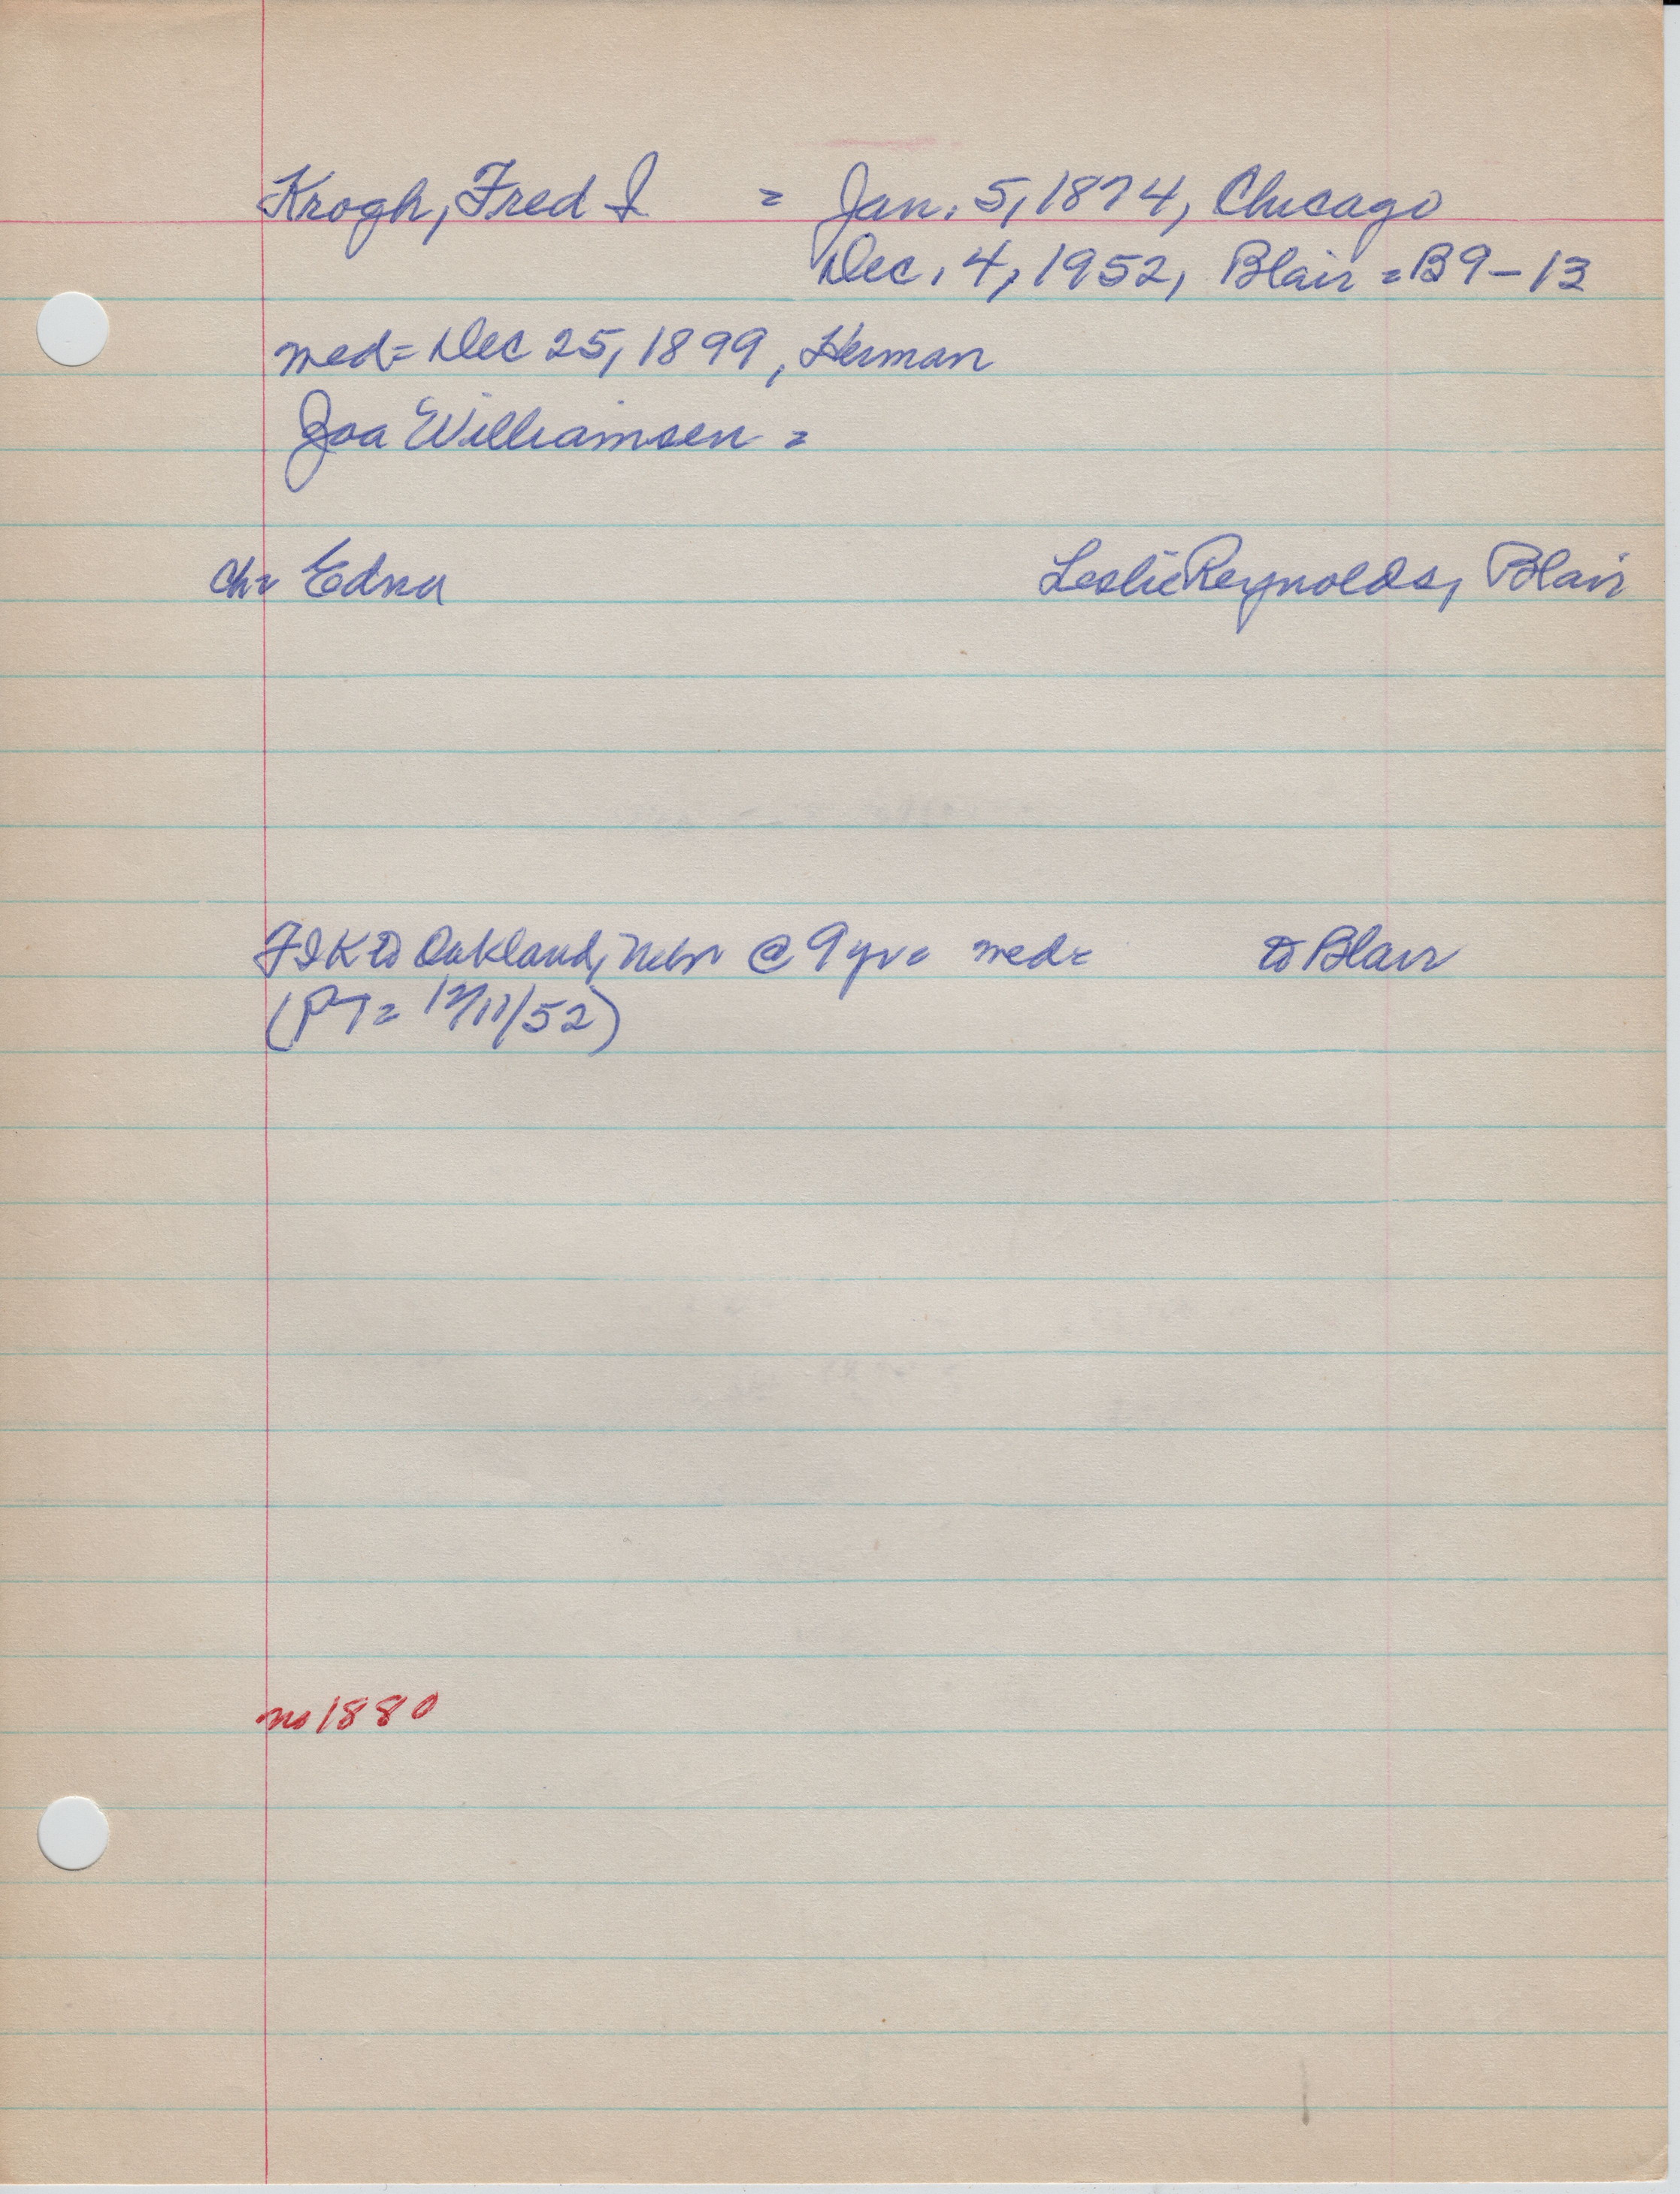 Krogh, Fred I = Jan. 5, 1874, Chicago
Dec. 4, 1952, Blair = B9-13
med= Dec 25, 1899, Herman
Joa Williamsen =
ch= Edna Leslie Reynolds, Blair
FIK to Oakland, Nebr @ 9 yrs med= to Blair
(PT= 12/11/52)
no 1880